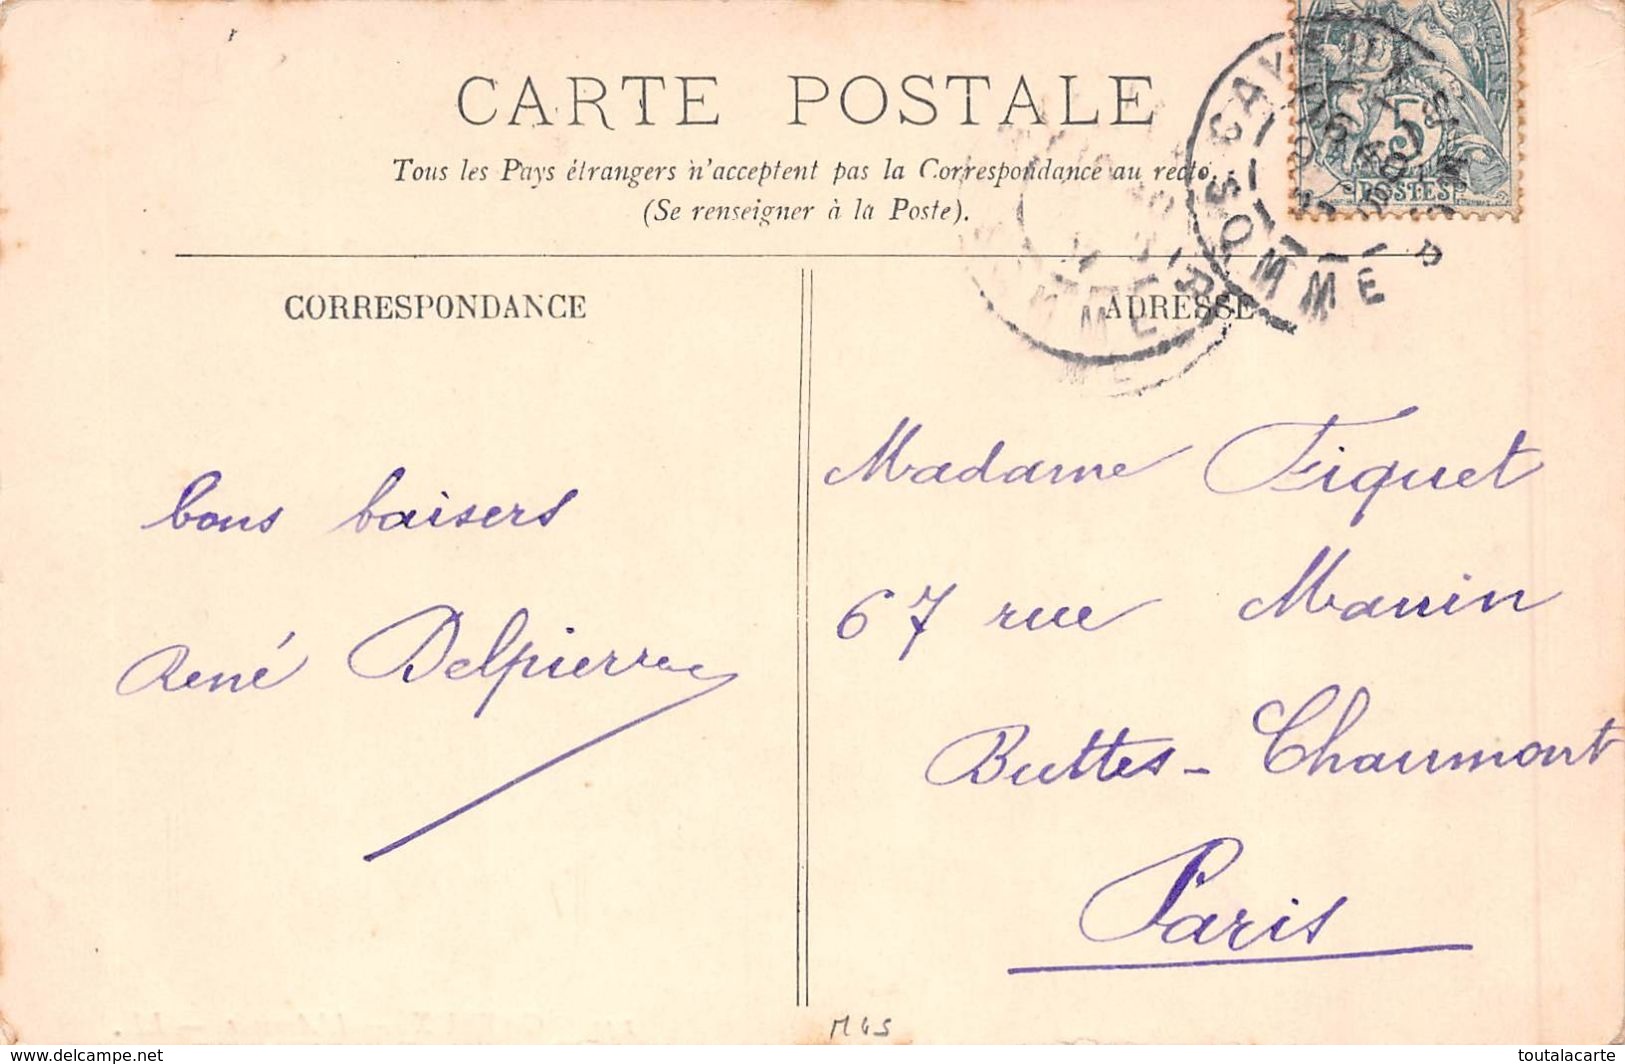 CARTE POSTALE
Tous les Pays étrangers n'acceptent pas la Correspondance au recto.
(Se renseigner à la Poste).
5
POSTES
CAYEUX-S
SOMME
CORRESPONDANCE
ADRESSE
bons baisers
René Delpierre
Madame Fiquet
67 rue Manin
Buttes-Chaumont
Paris
M45
https://www.delcampe.net
toutalacarte